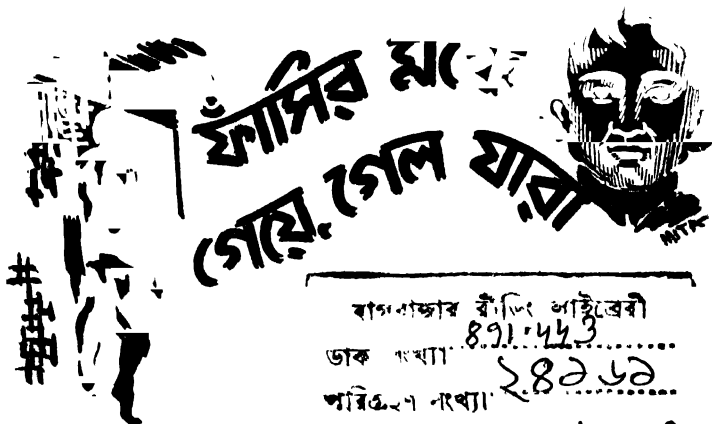 ফাঁসির মঞ্চে
গেয়ে গেল যারা
MITRA
বাগবাজার রীডিং লাইব্রেরী
ডাক সংখ্যা 891.443
পরিগ্রহণ সংখ্যা ২৪৯৬৯